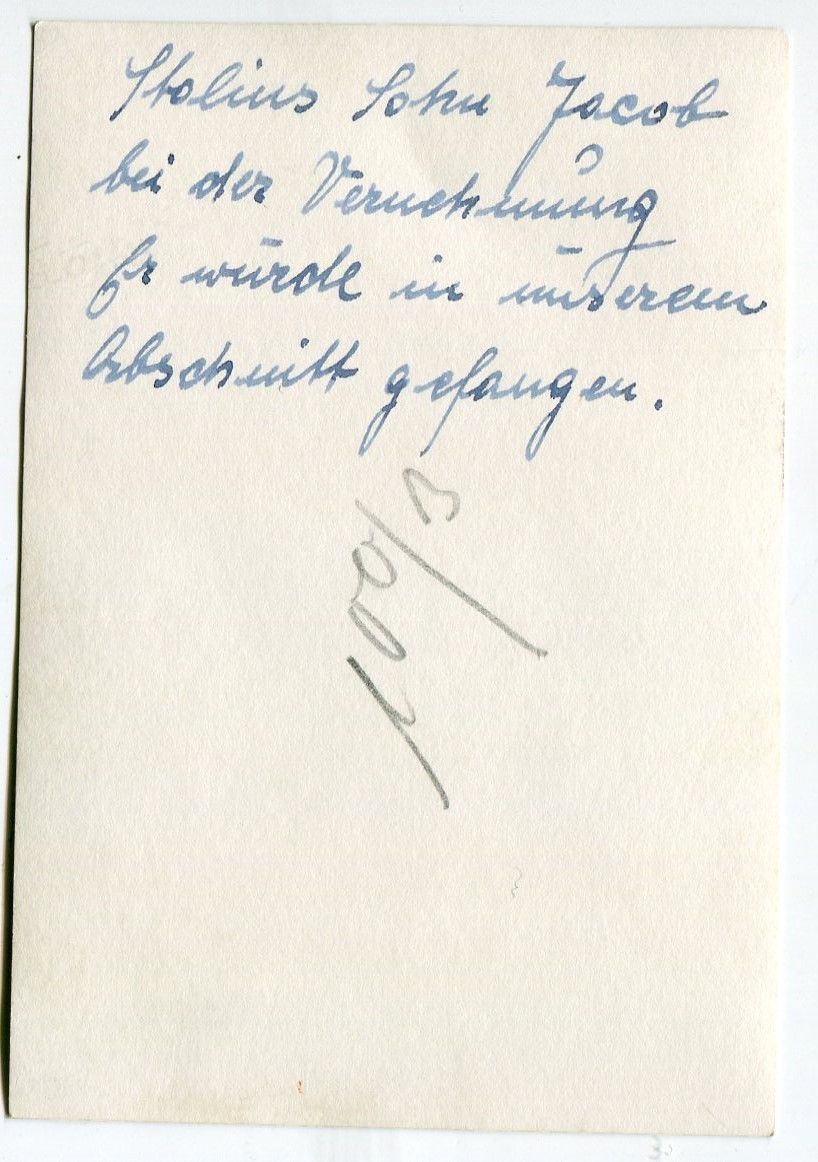 Stalins Sohn Jacob
bei der Vernehmung
Er wurde in unserem
Abschnitt gefangen.
100/3